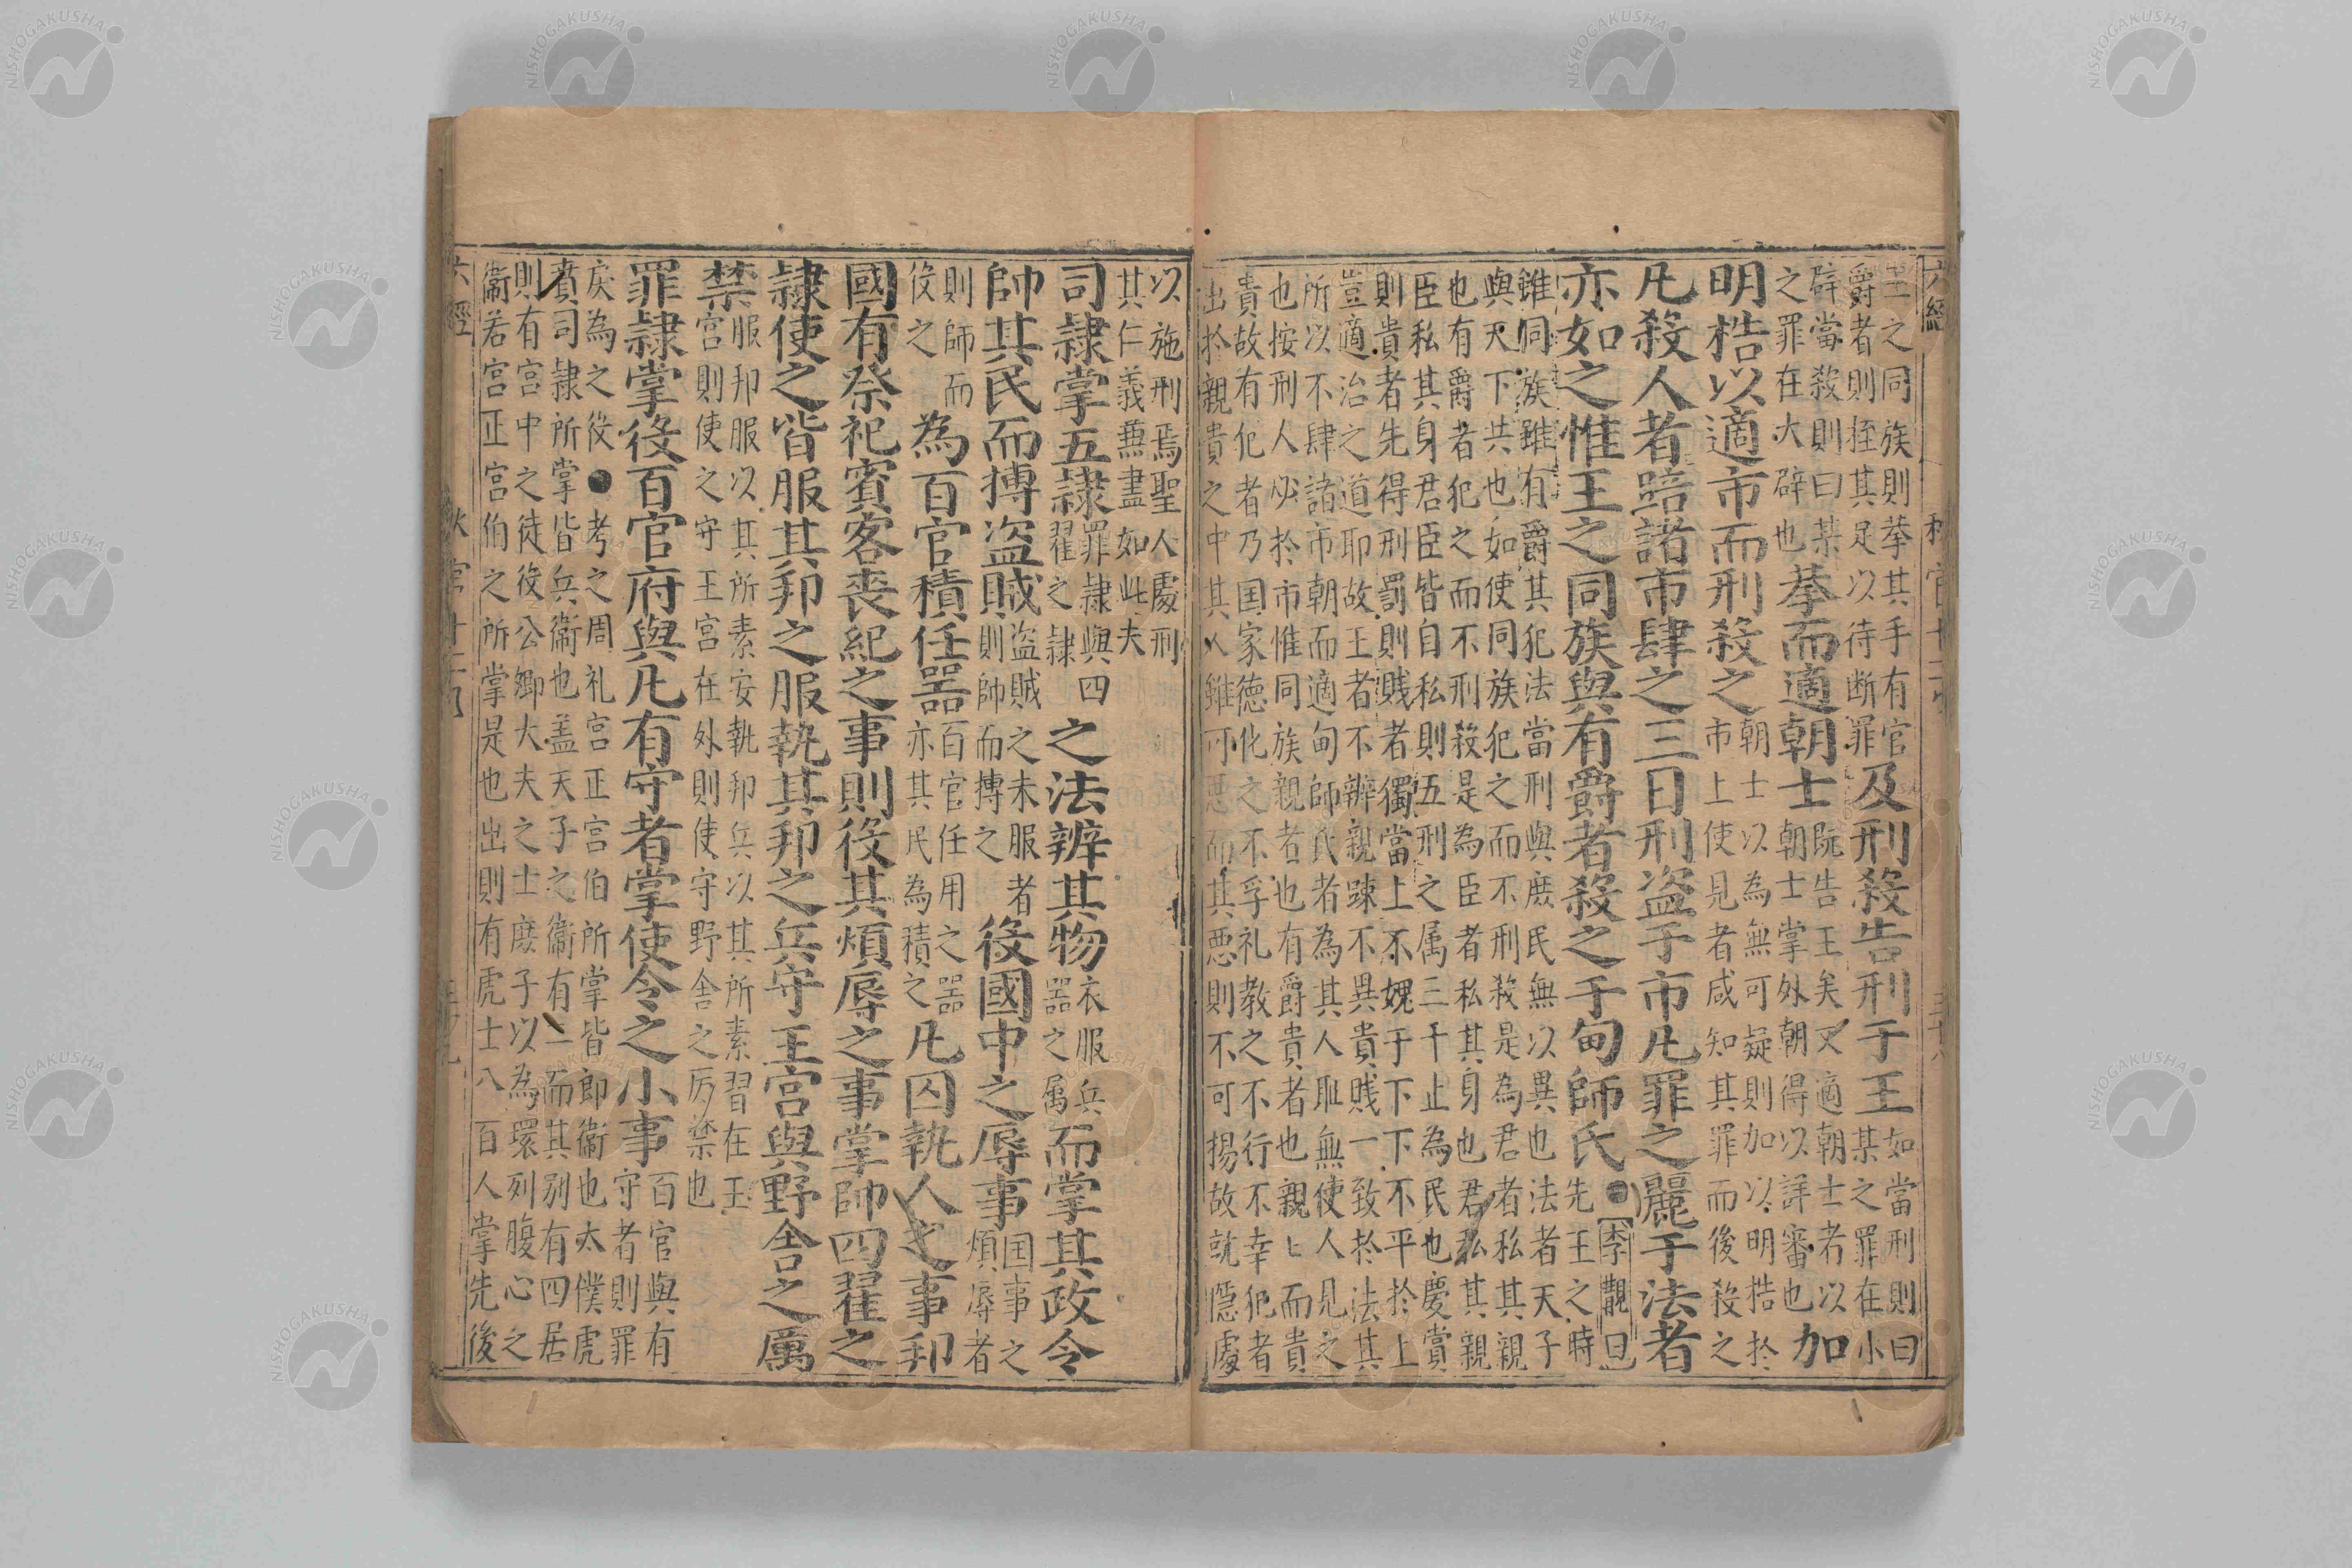 六經 秋官十二
王之同族則拲其手有官
爵者則桎其足以待断罪
及刑殺告刑于王
如當刑則曰
某之罪在小
辟當殺則曰某
之罪在大辟也
拲而適朝士
既告王矣又適朝士者以
朝士掌外朝得以詳審也
加
明梏以適市而刑殺之
朝士以為無可疑則加以明梏於
市上使見者咸知其罪而後殺之
凡殺人者踣諸市肆之三日刑盗于市凡罪之麗于法者
亦如之惟王之同族與有爵者殺之于甸師氏
●李覯曰
先王之時
雖同族雖有爵其犯法當刑與庶民無以異也法者天子
與天下共也如使同族犯之而不刑殺是為君者私其親
也有爵者犯之而不刑殺是為臣者私其身也君私其親
臣私其身君臣皆自私則五刑之属三千止為民也慶賞
則貴者先得刑罰則賤者獨當上不媿于下下不平於上
豈適治之道耶故王者不辨親踈不異貴賤一致於法其
所以不肆諸市朝而適甸師氏者為其人耻無使人見之
也按刑人必於市惟同族親者也有爵貴者也親ヒ而貴
貴故有犯者乃国家德化之不孚礼教之不行不幸犯者
出於親貴之中其人雖可惡而其惡則不可揚故就隱處
以施刑焉聖人處刑
其仁義無盡如此夫
司隷掌五隷
罪隷與四
翟之隷
之法辨其物
衣服兵
器之属
而掌其政令
帥其民而搏盗賊
盗賊之未服者
則帥而搏之
役國中之辱事
国事之
煩辱者
則師而
役之
為百官積任器
百官任用之器
亦其民為積之
凡囚執人之事邦
國有祭祀賓客喪紀之事則役其煩辱之事掌帥四翟之
隷使之皆服其邦之服執其邦之兵守王宮與野舎之厲
禁
服邦服以其所素安執邦兵以其所素習在王
宮則使之守王宮在外則使守野舎之厉禁也
罪隷掌役百官府與凡有守者掌使令之小事
百官與有
守者則罪
戻為之役●考之周礼宮正宮伯所掌皆郎衞也太僕虎
賁司隷所掌皆兵衞也盖天子之衞有二而其別有四居
則有宮中之徒役公卿大夫之士庶子以為環列腹心之
衞若宮正宮伯之所掌是也出則有虎士八百人掌先後
六經 秋官十二